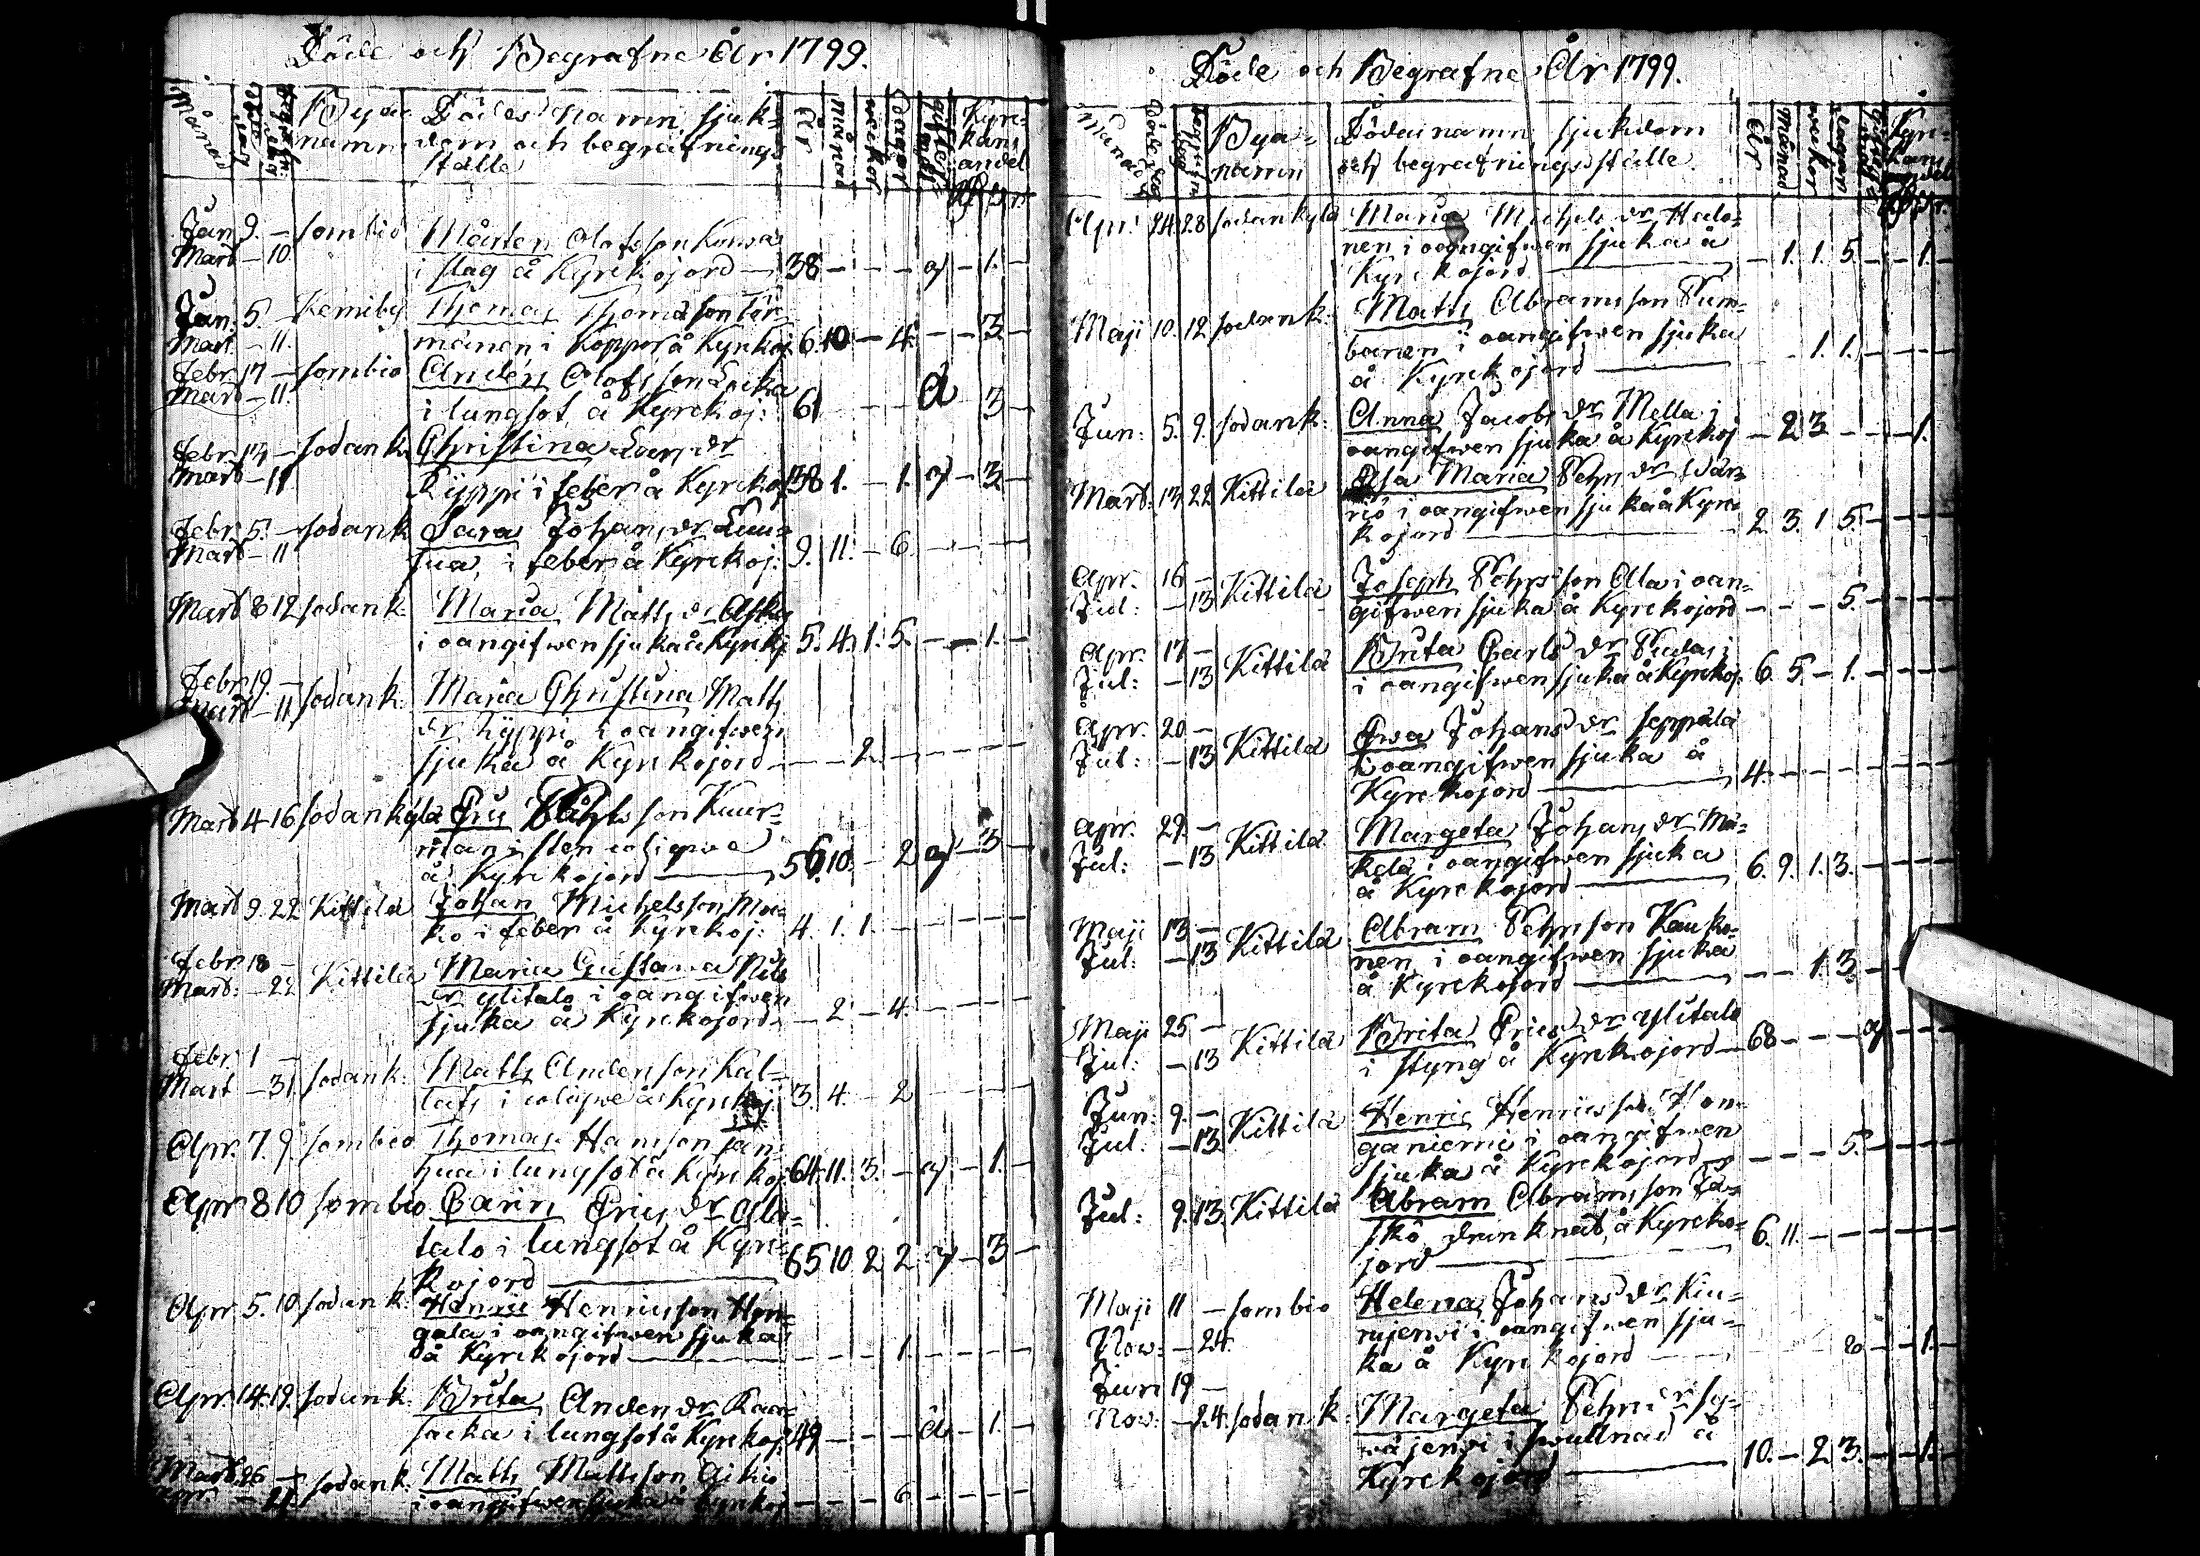 Döde och Begrafne År 1799.
Månad
Bya namn
Dödes namn, sjuk-
dom och begrafnings
ställe
År
Månad
wekor
Dagar
Kyrc-
kans
andel
Jan: 9. — Sombio Mårten Olofsson
Mart — 10. i slag å Kyrckojord — 38 — — — g — 1. —
Jan: 5. — Kemiby Thomas Thomasson Tör-
Mart — 11. mänen i koppor å Kyrckoj: 6. 10 — 4. — — 3 —
Febr: 17 — Sombio Anders Olofsson
Mart — 11. i lungsot å Kyrckoj: 61 — — — 3 —
Febr: 14 — Sodank: Christina Lars dr
Mart — 11 i feber å Kyrckoj 38 1. — 1. g — 3 —
Febr: 5. — Sodank Sara Johans dr Luu-
Mart — 11 sua, i feber å Kyrckoj: 9. 11. — 6. — — —
Mart 8 12 Sodank: Maria Matts dr
i oangifwen sjuka å Kyrckoj 5. 4. 1. 5. — — 1. —
Febr: 19. — Sodank: Maria Christina Matts
Mart — 11 dr Hyppi, i oangifwen
sjuka å Kyrckojord — — 2 — — — —
Mart 4 16 Sodankylä Eric son Kuur-
i sten å
å Kyrckojord — 56. 10. — 2 g — 3 —
Mart 9. 22 Kittilä Johan Michelsson Mar-
ko i feber å Kyrckoj: 4. 1. 1. — — — —
Febr: 18 — Kittilä Maria Gustawa Nils
Mart: — 22 dr Ylitalo i oangifwen
sjuka å Kyrckojord — 2 — 4. — — —
Febr: 1 — Sodank: Matts Anderson Kal-
Mart — 31 i å Kyrckoj 3. 4. — 2 — — —
Apr: 7. 9. Sombio Thomas Hansson Jan-
hua i lungsot å Kyrckoj 64. 11. 3. — g — 1. —
Apr: 8 10 Sombio Carin Erics dr Ala-
talo i lungsot å Kyrc-
kojord — 65 10 2 2 g — 3 —
Apr: 5. 10 Sodank: Henric Henricsson Hon-
gala i oangifwen sjuka
å Kyrckojord — — — — 1. — — —
Apr: 14. 19. Sodank: Brita Anders dr Kaa-
i lungsot å Kyrckoj: 49 — — — — 1. —
Mart 26 — Sodank Matts Mattsson Aikio
Apr: i oangifwen sjuka å Kyrckoj — — — 6 — — —
Döde och Begrafne År 1799.
Månad
Bya-
namn
Dödas namn, sjukdom
och begrafnings ställe
År
Månad
wekor
dagar
Kyrc-
kans
andel
Apr: 24 28 Sodankylä Maria Michels dr Halo-
nen i oangifwen sjuka å
Kyrckojord — — 1. 1. 5. — — 1. —
Maji 10. 12 Sodank: Matts Abramsson Pum-
banen i oangifwen sjuka
å Kyrckojord — — — 1. 1. — — — —
Jun: 5. 9. Sodank: Anna Jacobs dr Mella i
oangifwen sjuka å Kyrckoj — 2 3 — — — 1.
Mart: 14 22 Kittilä Maria Pehrs dr
i oangifwen sjuka å Kyrc-
kojord — 2. 3. 1. 5. — — —
Apr: 16 — Kittilä Joseph Pehrsson Ala i oan-
Jul: — 13 gifwen sjuka å Kyrckojord — — — 5. — — —
Apr: 17 — Kittilä Brita Carls dr i
Jul: — 13 i oangifwen sjuka å Kyrckoj: 6. 5. — 1. — — —
Apr: 20 — Kittilä Ewa Johans dr Seppälä
Jul: — 13 i oangifwen sjuka å
Kyrckojord — 4. — — — — — —
Apr: 29. — Kittilä Margeta Johans dr Mä-
Jul: — 13 kelä i oangifwen sjuka
å Kyrckojord — 6. 9. 1. 3. — — —
Maji 13 — Kittilä Abram Pehrsson Kauko-
Jul: — 13 nen i oangifwen sjuka
å Kyrckojord — — — 1. 3. —
Maji 25 — Kittilä Brita Erics dr Ylitalo
Jul: — 13 i styng å Kyrckojord — 68 — — — g — —
Jun: 9. — Kittilä Henric Henricsson Hon-
Jul: — 13. ganiemi i oangifwen
sjuka å Kyrckojord — — — 5. — — —
Jul: 9. 13. Kittilä Abram Abramsson Jä-
skö drunknad, å Kyrcko-
jord — 6. 11. — — — — —
Maji 11 — Sombio Helena Johans dr Kiu-
Now: — 24. rujerwi i oangifwen sju-
ka å Kyrckojord — — 1. —
Jun 19 —
Now: — 24. Sodank: Margeta Pehrs dr Sy-
wäjerwi i swullnad å
Kyrckojord — 10. — 2 3. — — 1. —